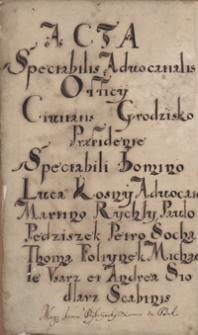 ACTA
Spectabilis Advocatialis
Officy
Civitatis Grodzisko
Præsidente
Spectabili Domino
Luca Kosny Advocat
Martino Rychły Paulo
Pedziszek Petro Socha
Thoma Foltynek Michae
le Usarz et Andrea Sio
dlarz Scabinis